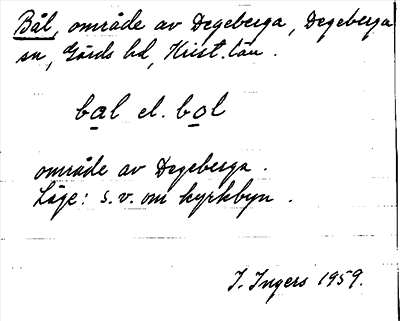 Bål, område av Degeberga, Degeberga
sn, Gärds hd, Krist. län.
bal el. bol
område av Degeberga.
Läge: s.v. om kyrkbyn.
I. Ingers 1959.